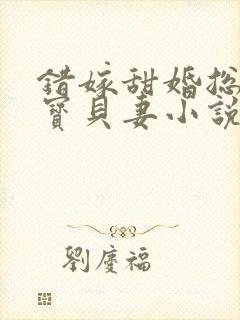 錯嫁甜婚總
寶貝妻小說
劉慶福